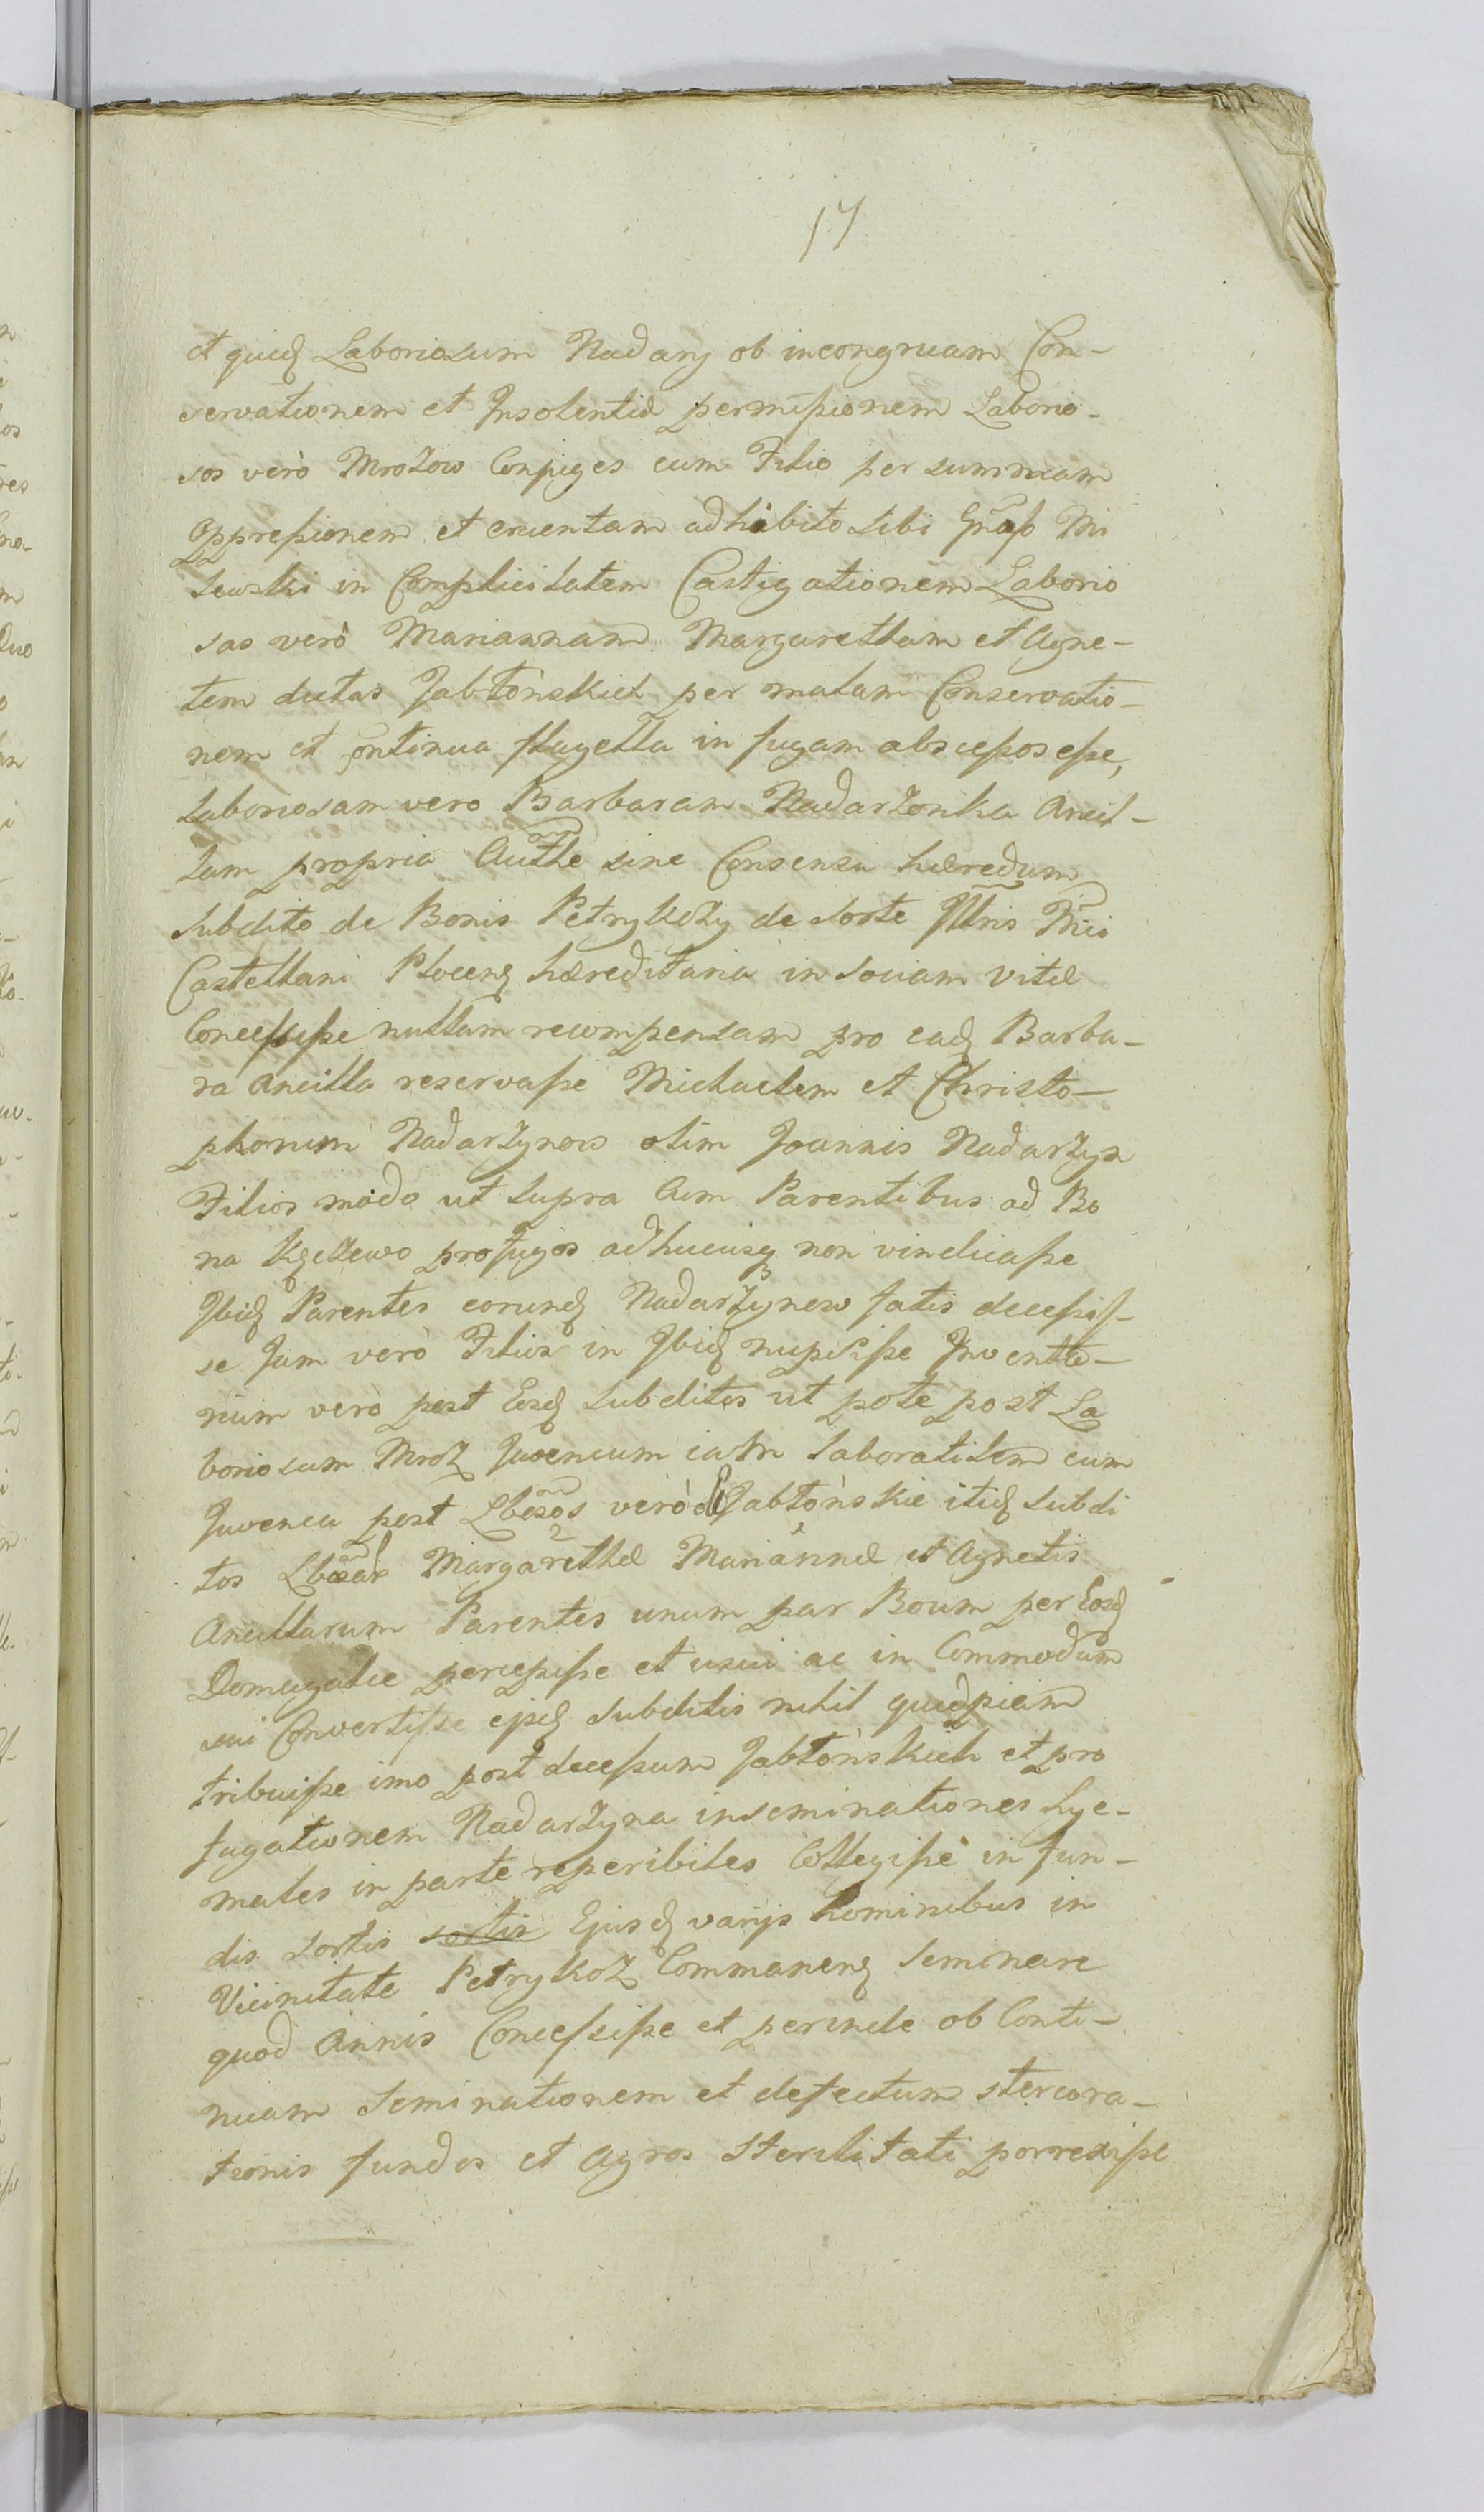 17
et quid Laboriosum Nadarz ob incongruam Con-
servationem et Insolentiæ permissionem Laborio-
sos verò Mrozow Conjuges cum Filio per summam
Oppressionem et cruentam adhibito sibi Mi
lewski in Complicitatem Castigationem Laborio
sas verò Mariannam Margaretham et Agne-
tem dictas Jabłónskich per malam Conservatio-
nem et continua flagella in fugam abscessos esse,
Laboriosam vero Barbaram Nadarzonka Ancil-
lam propria Authe sine Consensu hæredum
subdito de Bonis Petrykozy de sorte Illris
Castellani Plocen hæreditaria in sociam vitæ
Concessisse nullam recompensam pro ead Barba-
ra Ancilla reservasse Michaelem et Christo-
phorum Nadarzynow olim Joannis Nadarzyn
Filios modo ut supra Cum Parentibus ad Bo
na profugos adhucusq non vindicasse
Ibid Parentes eorund Nadarzynow fatis decessis-
se Jam verò Filios in Ibid nupsisse Inventa-
rium verò post Eosd subditos ut pote post La
boriosum Mroz Juvencum laboratilem cum
Juvenca post Lbosos verò Jabłónskie itid subdi
tos Lbosar Margarethæ Mariannæ et Agnetis
Ancillarum Parentes unum par Boum per Eosd
Domagalie percepisse et usui ac in Commodum
sui Convertisse ejsd subditis nihil quidpiam
tribuisse imo post decessum Jabłónskich et pro
fugationem Nadarzyna inseminationes hye-
males in parte reperibiles Collegisse in fun-
dis sortis sortis Ejusd varijs hominibus in
Vicinitate Petrykoz Commanen seminare
quod Annis Concessisse et perinde ob Conti-
nuam seminationem et defectum stercora-
tionis fundos et agros sterilitati porrexisse